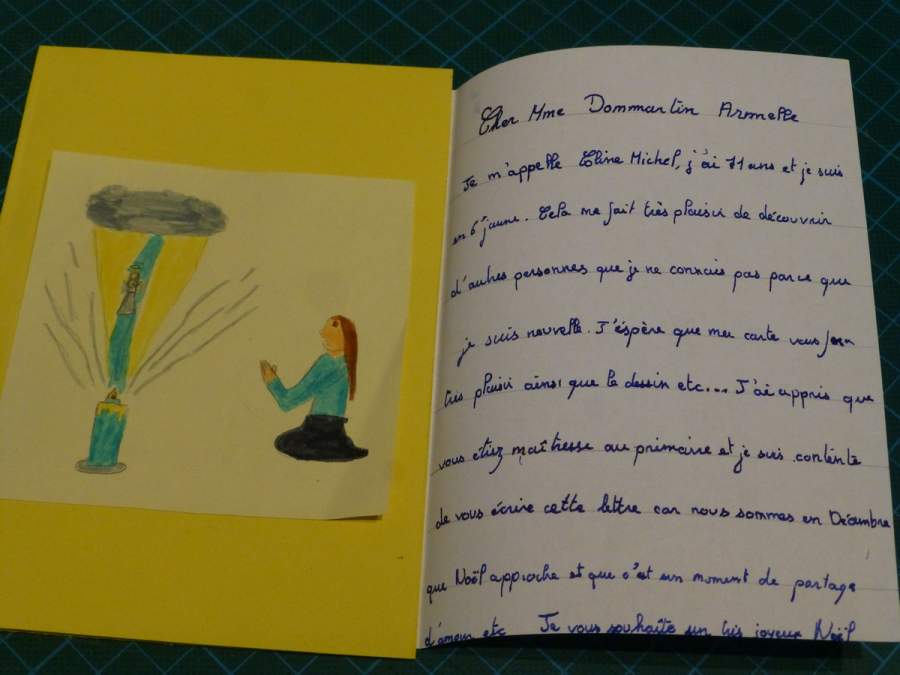 Cher Mme Dommartin Armelle
Je m'appelle Eline Michel, j'ai 11 ans et je suis
en 6e jaune. Cela me fait très plaisir de découvrir
d'autres personnes que je ne connais pas parce que
je suis nouvelle. J'éspère que ma carte vous fera
très plaisir ainsi que le dessin etc... J'ai appris que
vous étiez maîtresse au primaire et je suis contente
de vous écrire cette lettre car nous sommes en Décembre
que Noël approche et que c'est un moment de partage
d'amour etc Je vous souhaite un très joyeux Noël